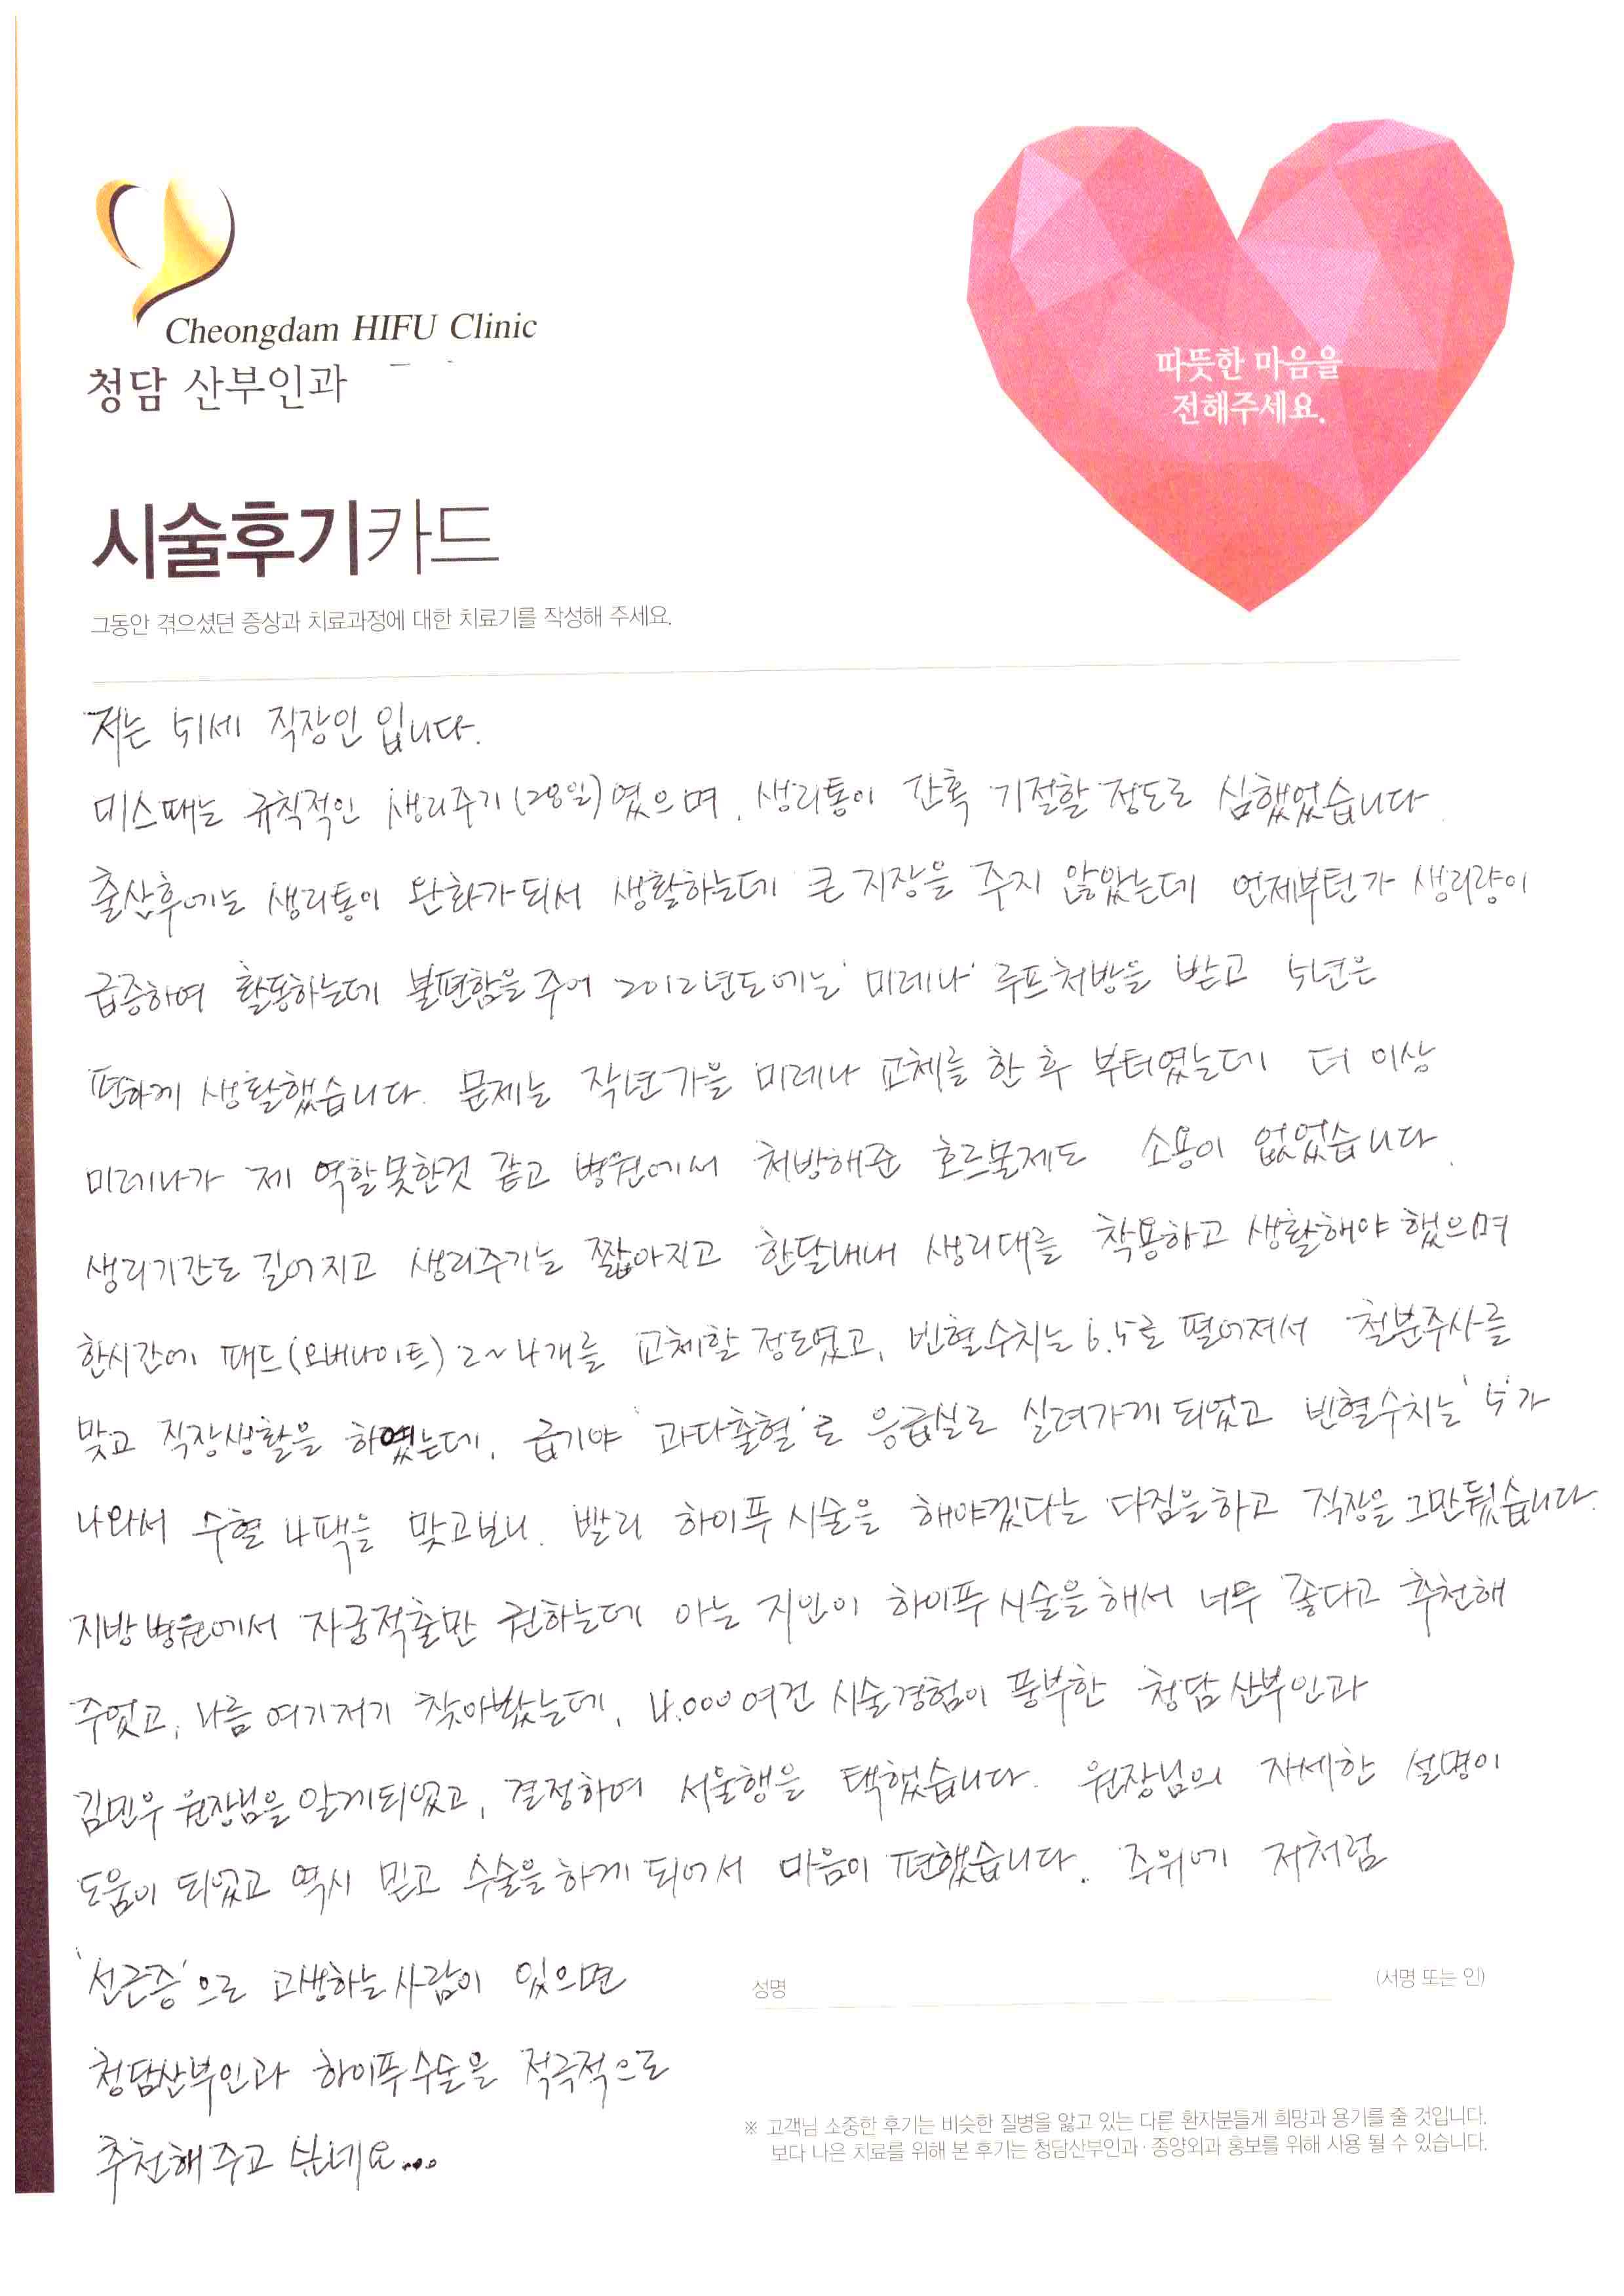 Cheongdam HIFU Clinic
청담 산부인과
따뜻한 마음을
전해주세요.
시술후기카드
그동안 겪으셨던 증상과 치료과정에 대한 치료기를 작성해 주세요.
저는 51세 직장인 입니다.
미스때는 규칙적인 생리주기(28일)였으며, 생리통이 간혹 기절할 정도로 심했었습니다.
출산후에는 생리통이 완화가 되서 생활하는데 큰 지장을 주지 않았는데 언제부턴가 생리량이
급증하여 활동하는데 불편함을 주어 2012년도에는 '미레나' 루프처방을 받고 5년은
편하게 생활했습니다. 문제는 작년가을 미레나 교체를 한 후 부터였는데 더 이상
미레나가 제 역할못한것 같고 병원에서 처방해준 호르몬제도 소용이 없었습니다.
생리기간도 길어지고 생리주기는 짧아지고 한달내내 생리대를 착용하고 생활해야 했으며
한시간에 패드(오버나이트) 2~4개를 교체할 정도였고, 빈혈수치는 6.5로 떨어져서 철분주사를
맞고 직장생활을 하였는데, 급기야 '과다출혈'로 응급실로 실려가게 되었고 빈혈수치는 '5'가
나와서 수혈 4팩을 맞고보니, 빨리 하이푸 시술을 해야겠다는 다짐을하고 직장을 그만뒀습니다.
지방병원에서 자궁적출만 권하는데 아는 지인이 하이푸 시술을 해서 너무 좋다고 추천해
주었고, 나름 여기저기 찾아봤는데, 4,000여건 시술경험이 풍부한 청담 산부인과
김민우 원장님을 알게되었고, 결정하여 서울행을 택했습니다. 원장님의 자세한 설명이
도움이 되었고 역시 믿고 수술을 하게 되어서 마음이 편했습니다. 주위에 저처럼
'선근증'으로 고생하는 사람이 있으면
청담산부인과 하이푸수술을 적극적으로
추천해주고 싶네요...
성명 (서명 또는 인)
※ 고객님 소중한 후기는 비슷한 질병을 앓고 있는 다른 환자분들게 희망과 용기를 줄 것입니다.
보다 나은 치료를 위해 본 후기는 청담산부인과·종양외과 홍보를 위해 사용 될 수 있습니다.